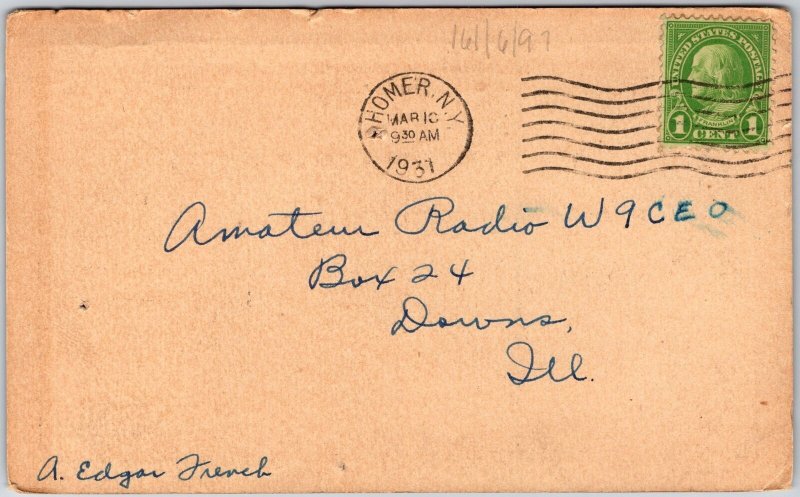 161/6/97
UNITED STATES POSTAGE
FRANKLIN
1 CENT 1
HOMER, N.Y.
MAR 10
9 30 AM
1931
Amateur Radio W9CEO
Box 24
Downs,
Ill.
A. Edgar French